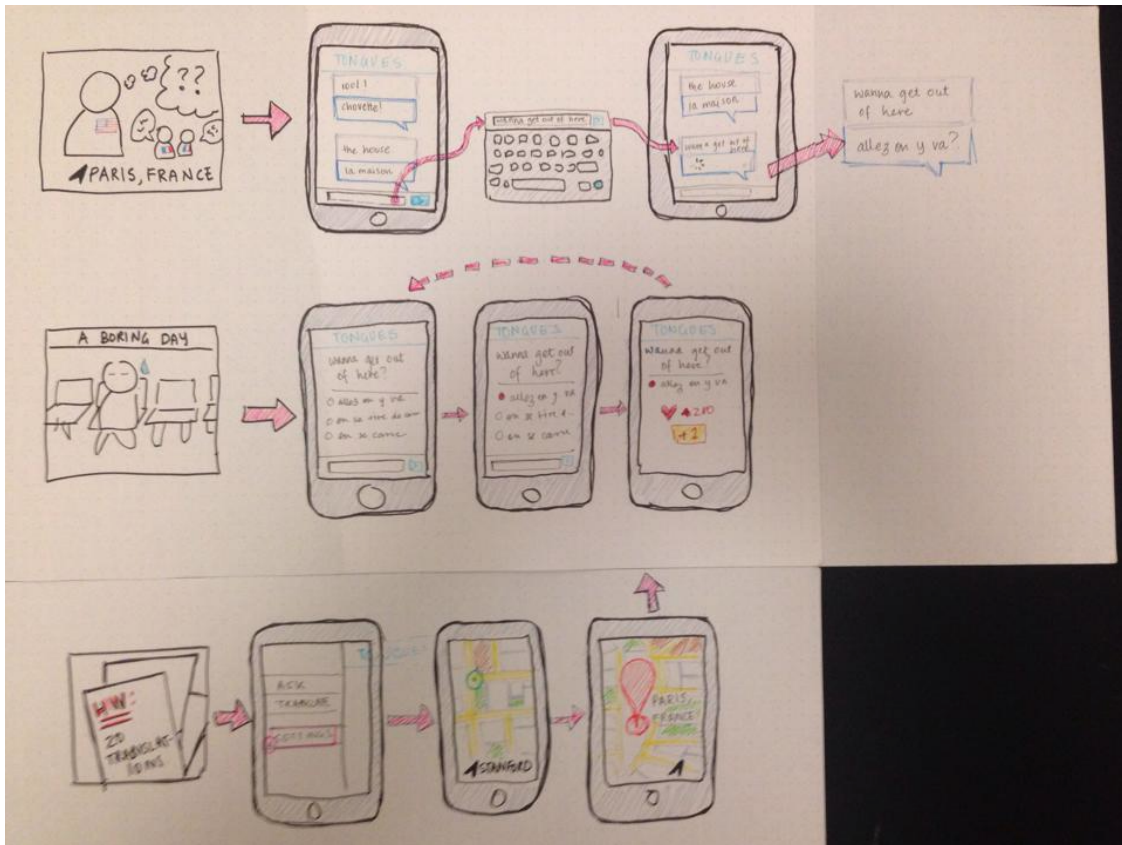 ??
PARIS, FRANCE
TONGUES
cool!
chouette!
the house
la maison
wanna get out of here
TONGUES
the house
la maison
wanna get out of
here
wanna get out
of here
allez on y va?
A BORING DAY
TONGUES
wanna get out
of here?
allez on y va
on se
on se casse
TONGUES
wanna get out
of here?
allez on y va
on se tire d...
on se casse
TONGUES
wanna get out
of here?
allez on y va
200
+2
HW:
20
TRANSLAT-
IONS
TONGUES
ASK
TRANSLATE
SETTINGS
STANFORD
PARIS,
FRANCE